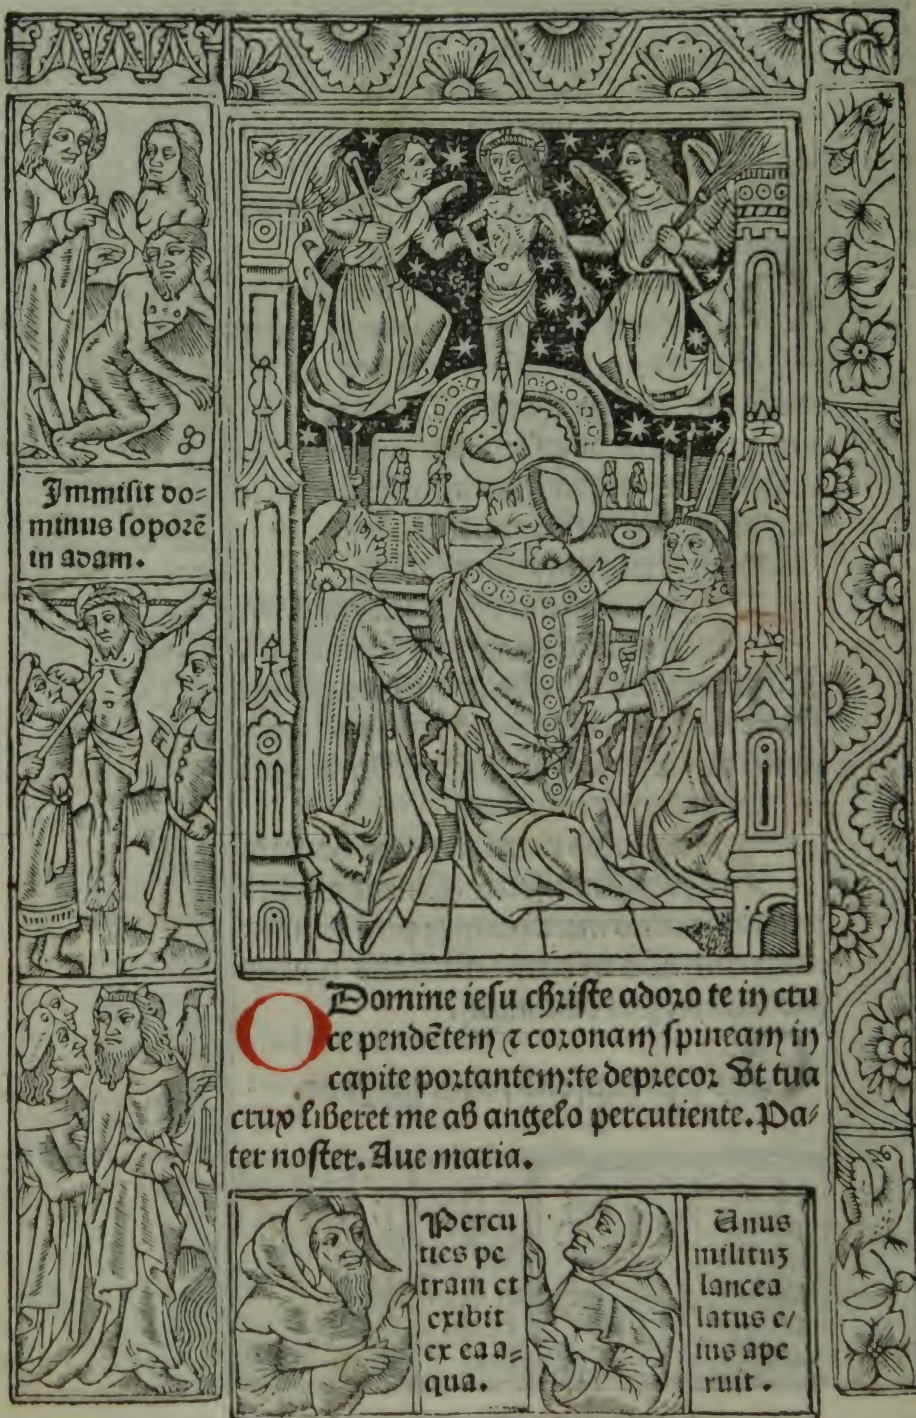 Immisit do=
minus soporē
in adam.
O Domine iesu christe adoro te in cru
ce pendētem ⁊ coronam spineam in
capite portantem: te deprecor Ut tua
crux liberet me ab angelo percutiente. Pa/
ter noster. Aue maria.
Percu
ties pe
tram et
exibit
ex ea a=
qua.
Unus
milituʒ
lancea
latus e/
ius ape
ruit.